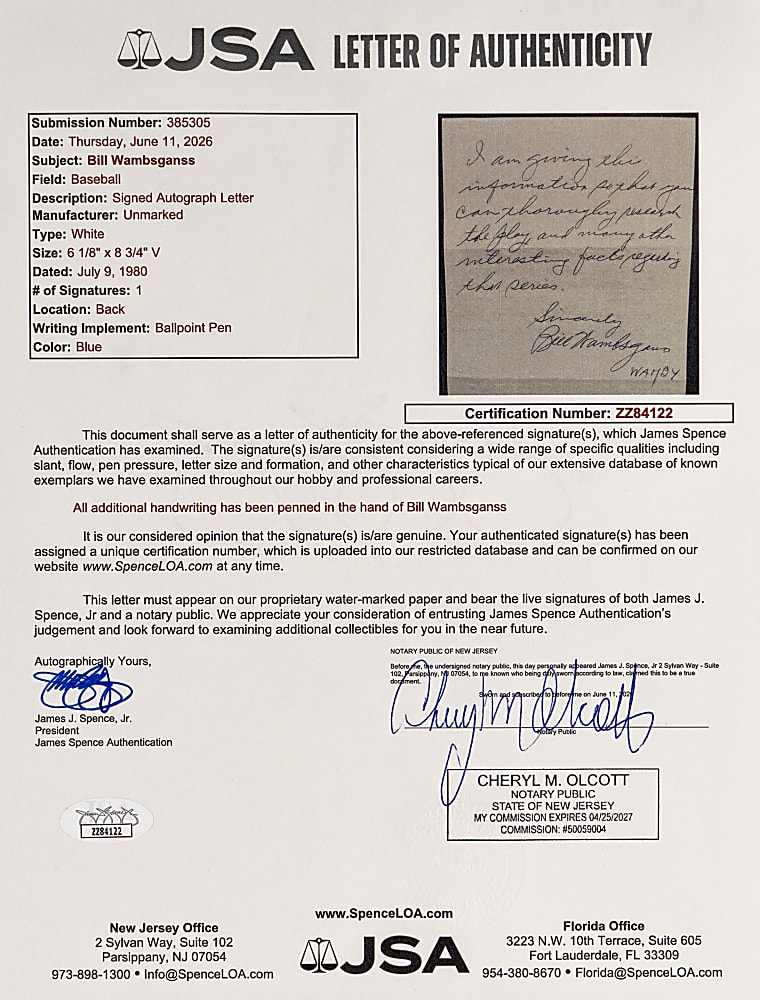 JSA LETTER OF AUTHENTICITY
Submission Number: 385305
Date: Thursday, June 11, 2026
Subject: Bill Wambsganss
Field: Baseball
Description: Signed Autograph Letter
Manufacturer: Unmarked
Type: White
Size: 6 1/8" x 8 3/4" V
Dated: July 9, 1980
# of Signatures: 1
Location: Back
Writing Implement: Ballpoint Pen
Color: Blue
I am giving this
information so that you
can thoroughly research
the play, and many other
interesting facts regarding
that series.
Sincerely
Bill Wambsganss
WAMBY
Certification Number: ZZ84122
This document shall serve as a letter of authenticity for the above-referenced signature(s), which James Spence
Authentication has examined. The signature(s) is/are consistent considering a wide range of specific qualities including
slant, flow, pen pressure, letter size and formation, and other characteristics typical of our extensive database of known
exemplars we have examined throughout our hobby and professional careers.
All additional handwriting has been penned in the hand of Bill Wambsganss
It is our considered opinion that the signature(s) is/are genuine. Your authenticated signature(s) has been
assigned a unique certification number, which is uploaded into our restricted database and can be confirmed on our
website www.SpenceLOA.com at any time.
This letter must appear on our proprietary water-marked paper and bear the live signatures of both James J.
Spence, Jr and a notary public. We appreciate your consideration of entrusting James Spence Authentication's
judgement and look forward to examining additional collectibles for you in the near future.
Autographically Yours,
James J. Spence, Jr.
President
James Spence Authentication
NOTARY PUBLIC OF NEW JERSEY
Before me, the undersigned notary public, this day personally appeared James J. Spence, Jr 2 Sylvan Way - Suite
102, Parsippany, NJ 07054, to me known who being duly sworn according to law, claimed this to be a true
document.
Sworn and subscribed to before me on June 11, 2026
Cheryl M Olcott
Notary Public
CHERYL M. OLCOTT
NOTARY PUBLIC
STATE OF NEW JERSEY
MY COMMISSION EXPIRES 04/25/2027
COMMISSION: #50059004
ZZ84122
www.SpenceLOA.com
New Jersey Office
2 Sylvan Way, Suite 102
Parsippany, NJ 07054
973-898-1300 • Info@SpenceLOA.com
JSA
Florida Office
3223 N.W. 10th Terrace, Suite 605
Fort Lauderdale, FL 33309
954-380-8670 • Florida@SpenceLOA.com